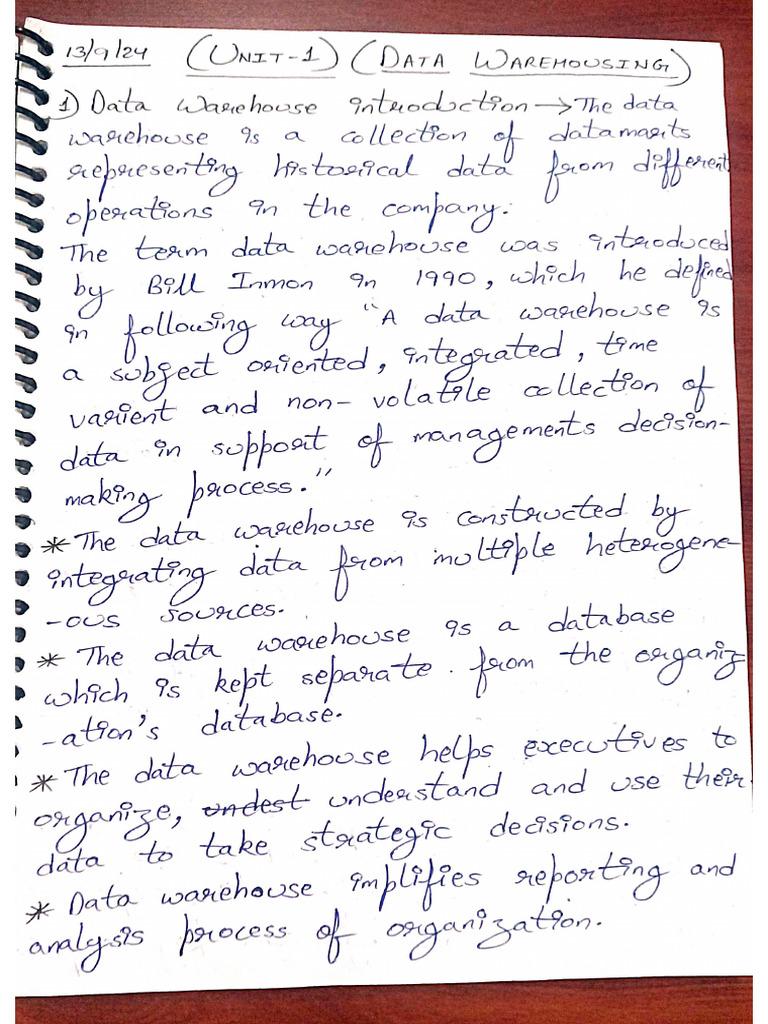 13/9/24 (UNIT-1) (DATA WAREHOUSING)
1) Data Warehouse introduction → The data
warehouse is a collection of datamarts
representing historical data from different
operations in the company.
The term data warehouse was introduced
by Bill Inmon in 1990, which he defined
in following way "A data warehouse is
a subject oriented, integrated, time
varient and non-volatile collection of
data in support of managements decision-
making process."
* The data warehouse is constructed by
integrating data from multiple heterogene-
-ous sources.
* The data warehouse is a database
which is kept separate. from the organiz
-ation's database.
* The data warehouse helps executives to
organize, undest understand and use their
data to take strategic decisions.
* Data warehouse implifies reporting and
analysis process of organization.